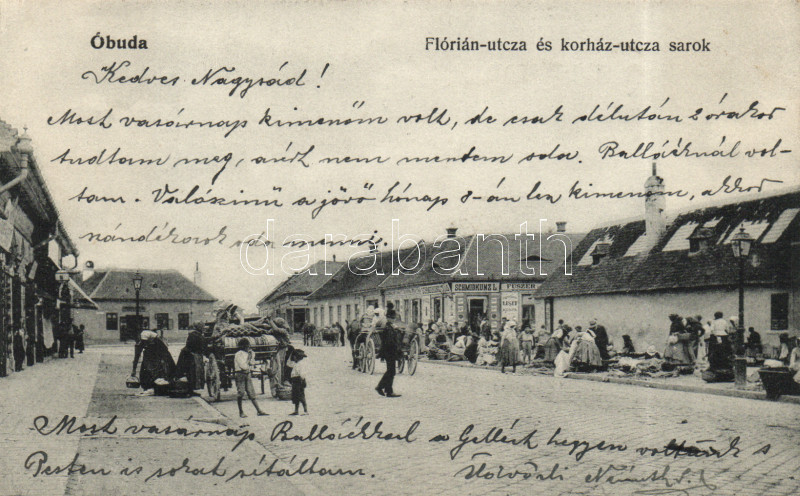 Óbuda
Flórián-utcza és korház-utcza sarok
Kedves Nagysád!
Most vasárnap kimenőm volt, de csak délután 2 órakor
tudtam meg, azért nem mentem oda. Ballóéknál vol-
tam. Valószinü a jövő hónap 8-án lesz kimenőm, akkor
szándékozok oda menni.
darabanth
SCHMIDKUNZ L.
FÜSZER
Most vasárnap Ballóékkal a Gellért hegyen voltunk s
Pesten is sokat sétáltam.
Üdvözli Németh